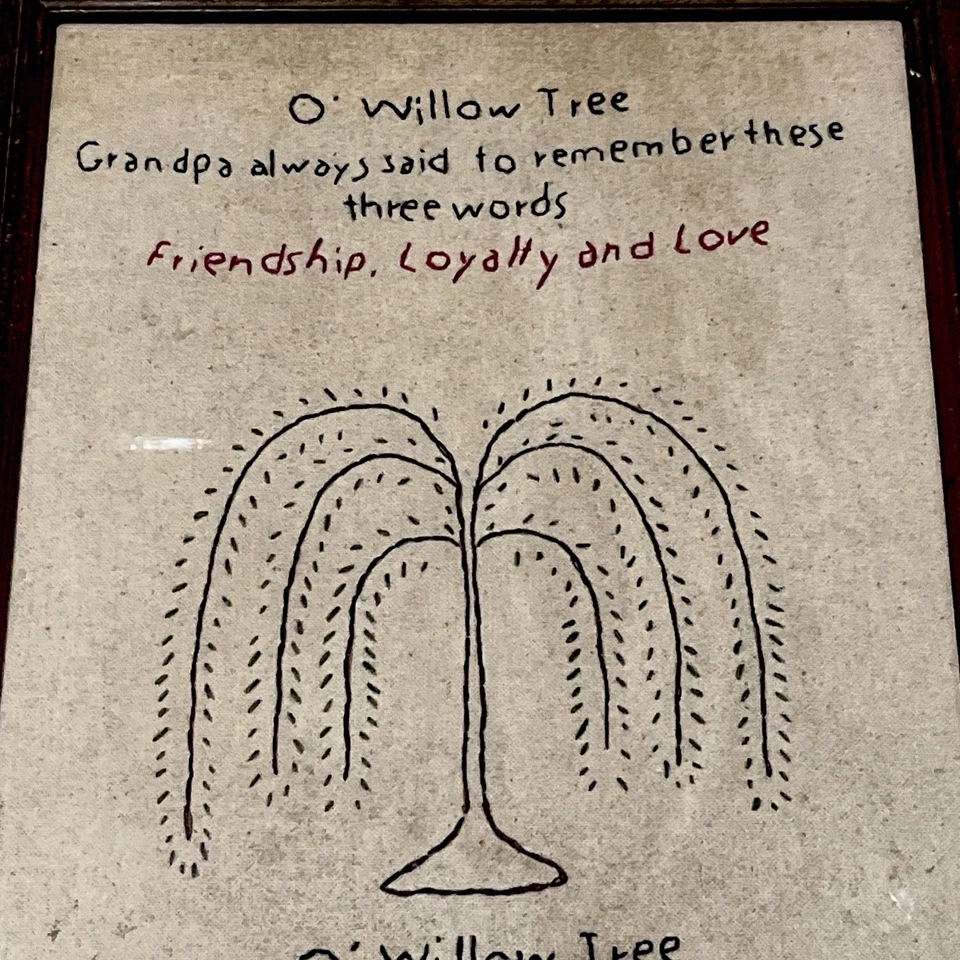 O' Willow Tree
Grandpa always said to remember these
three words
Friendship, Loyalty and Love
O' Willow Tree